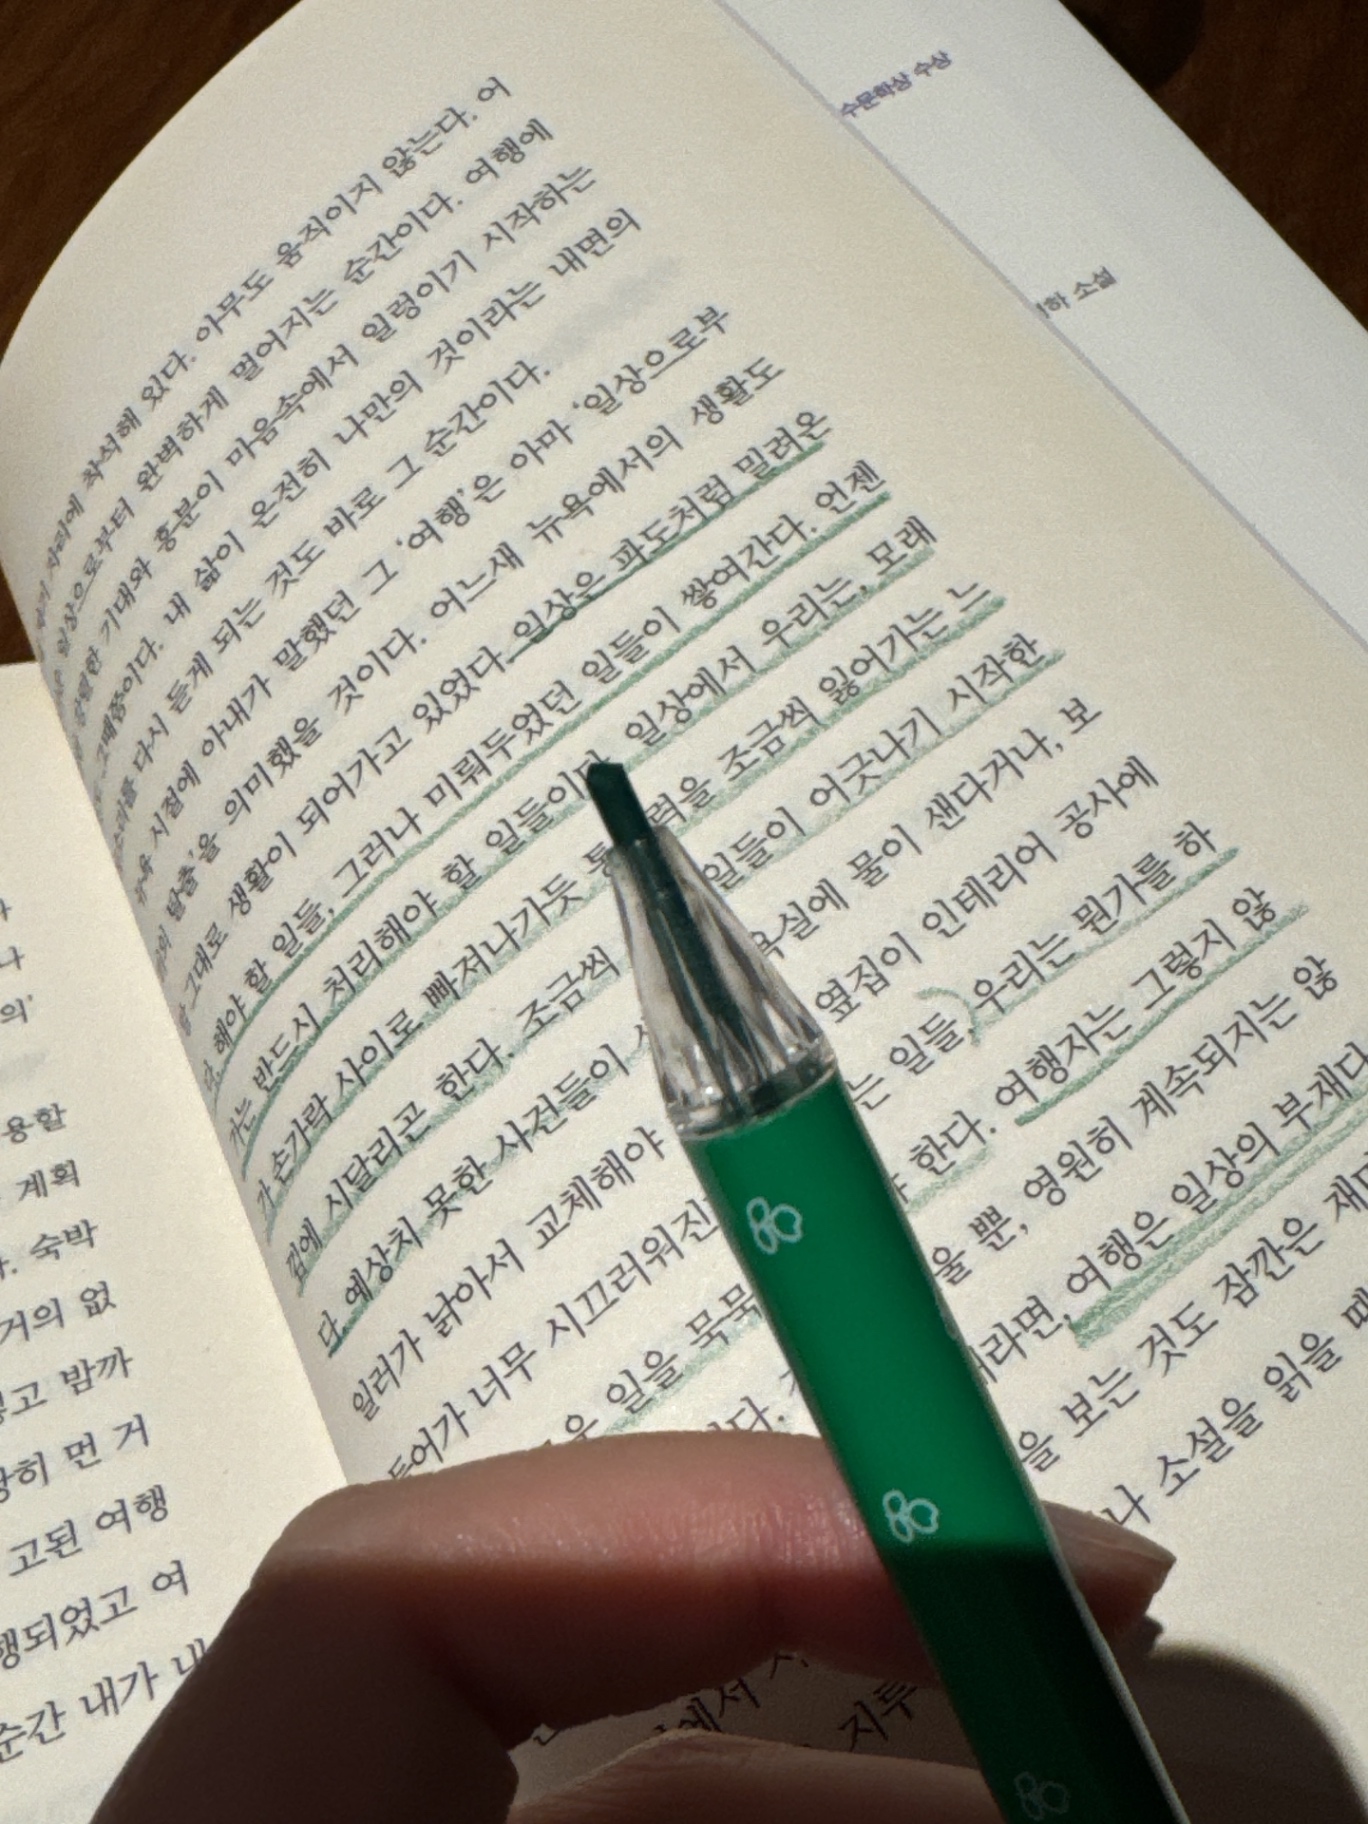 수문학상 수상
하 소설
자리에 착석해 있다. 아무도 움직이지 않는다. 어
일상으로부터 완벽하게 멀어지는 순간이다. 여행에
강렬한 기대와 흥분이 마음속에서 일렁이기 시작하는
그때쯤이다. 내 삶이 온전히 나만의 것이라는 내면의
소리를 다시 듣게 되는 것도 바로 그 순간이다.
시점에 아내가 말했던 그 '여행'은 아마 '일상으로부
탈출'을 의미했을 것이다. 어느새 뉴욕에서의 생활도
그대로 생활이 되어가고 있었다. 일상은 파도처럼 밀려온
다. 해야 할 일들, 그러나 미뤄두었던 일들이 쌓여간다. 언젠
가는 반드시 처리해야 할 일들이다. 일상에서 우리는, 모래
가 손가락 사이로 빠져나가듯 통 력을 조금씩 잃어가는 느
낌에 시달리곤 한다. 조금씩 일들이 어긋나기 시작한
다. 예상치 못한 사건들이 욕실에 물이 샌다거나, 보
일러가 낡아서 교체해야 옆집이 인테리어 공사에
들어가 너무 시끄러워진 는 일들, 우리는 뭔가를 하
일을 묵묵 한다. 여행자는 그렇지 않
다. 울 뿐, 영원히 계속되지는 않
라면, 여행은 일상의 부재다.
을 보는 것도 잠깐은 재미
나 소설을 읽을 때
에서
지루
나
의'
용할
계획
숙박
거의 없
고 밤까
당히 먼 거
고된 여행
행되었고 여
순간 내가 내